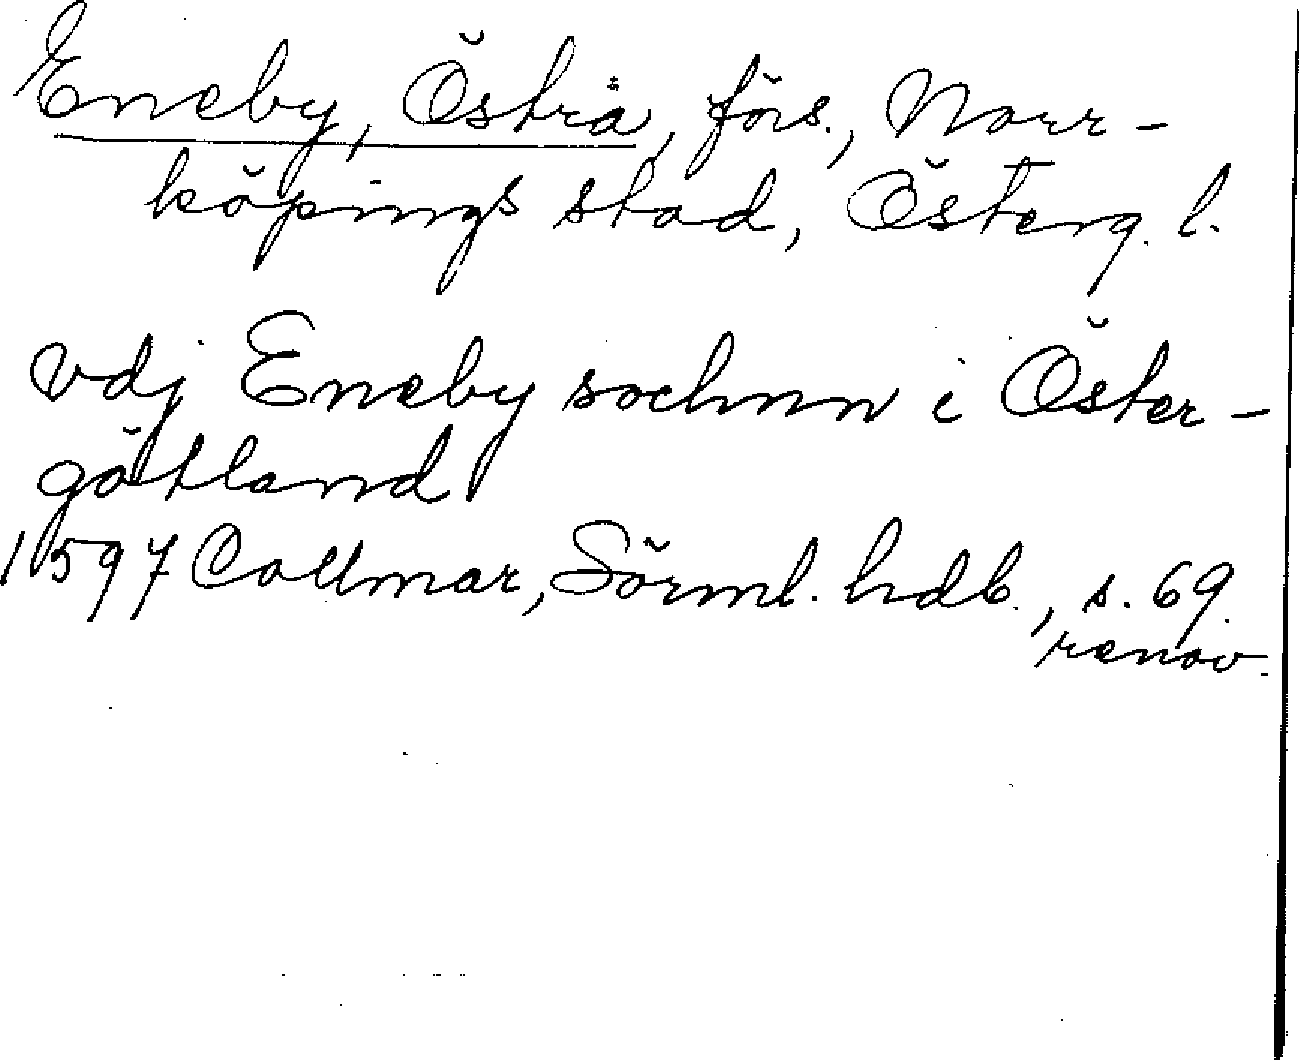 Eneby, Östra, förs., Norr-
köpings stad, Österg. l.
vdj Eneby sochnn i Öster-
götland
1597 Collmar, Sörml. hdb., s. 69
renov.